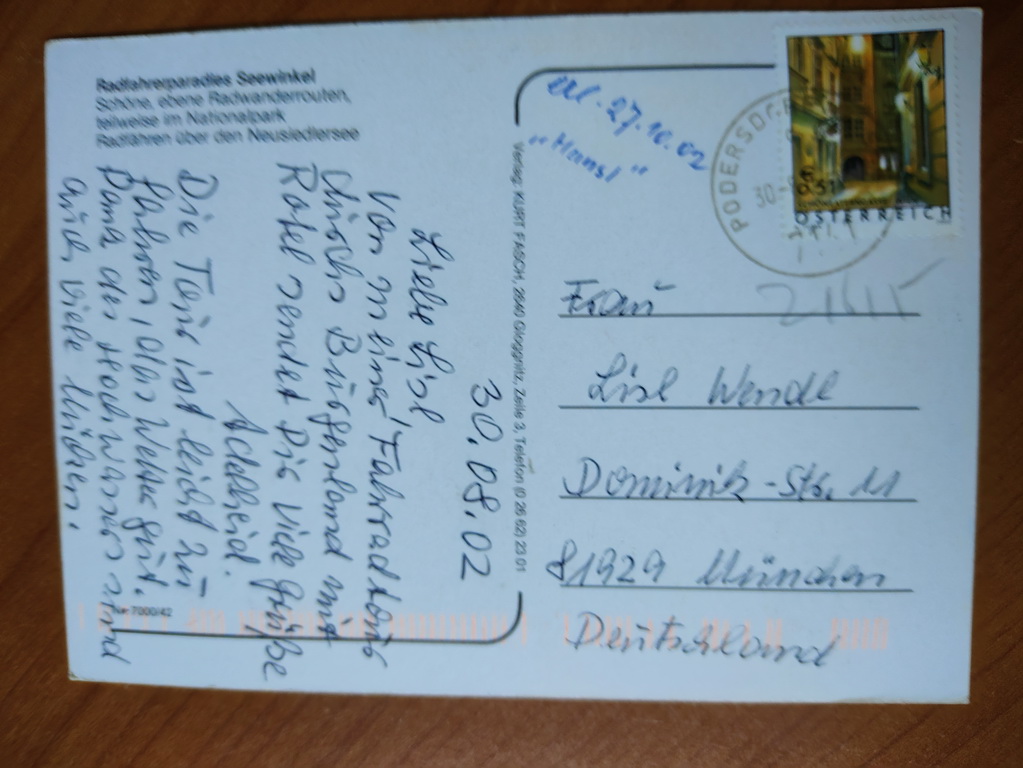 Radfahrerparadies Seewinkel
Schöne, ebene Radwanderrouten,
teilweise im Nationalpark
Radfahren über den Neusiedlersee
30.08.02
Liebe Lisl,
Von meiner Fahrradtour
durch Burgenland mit
Rotel sendet Dir viele Grüße
Adelheid.
Die Tour ist leicht zu
fahren, Wetter gut.
Dana der Hochwasser sind
auch viele Mücken.
Nr. 7000/42
Verlag: KURT FASCH, 2640 Gloggnitz, Zeile 3, Telefon (0 26 62) 23 01
27.10.02
"Hansl"
PODERSDORF
30
€ 0,51
ÖSTERREICH
Frau
Lisl Wendl
Dominik-Str. 11
81929 München
Deutschland